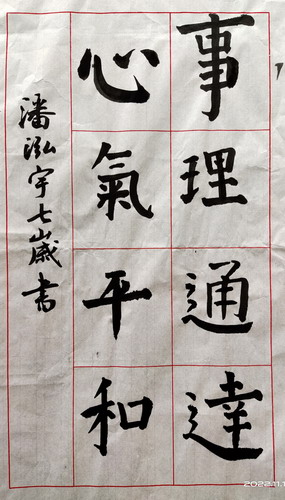 事理通達
心氣平和
潘泓宇七歲書
2022.11.1